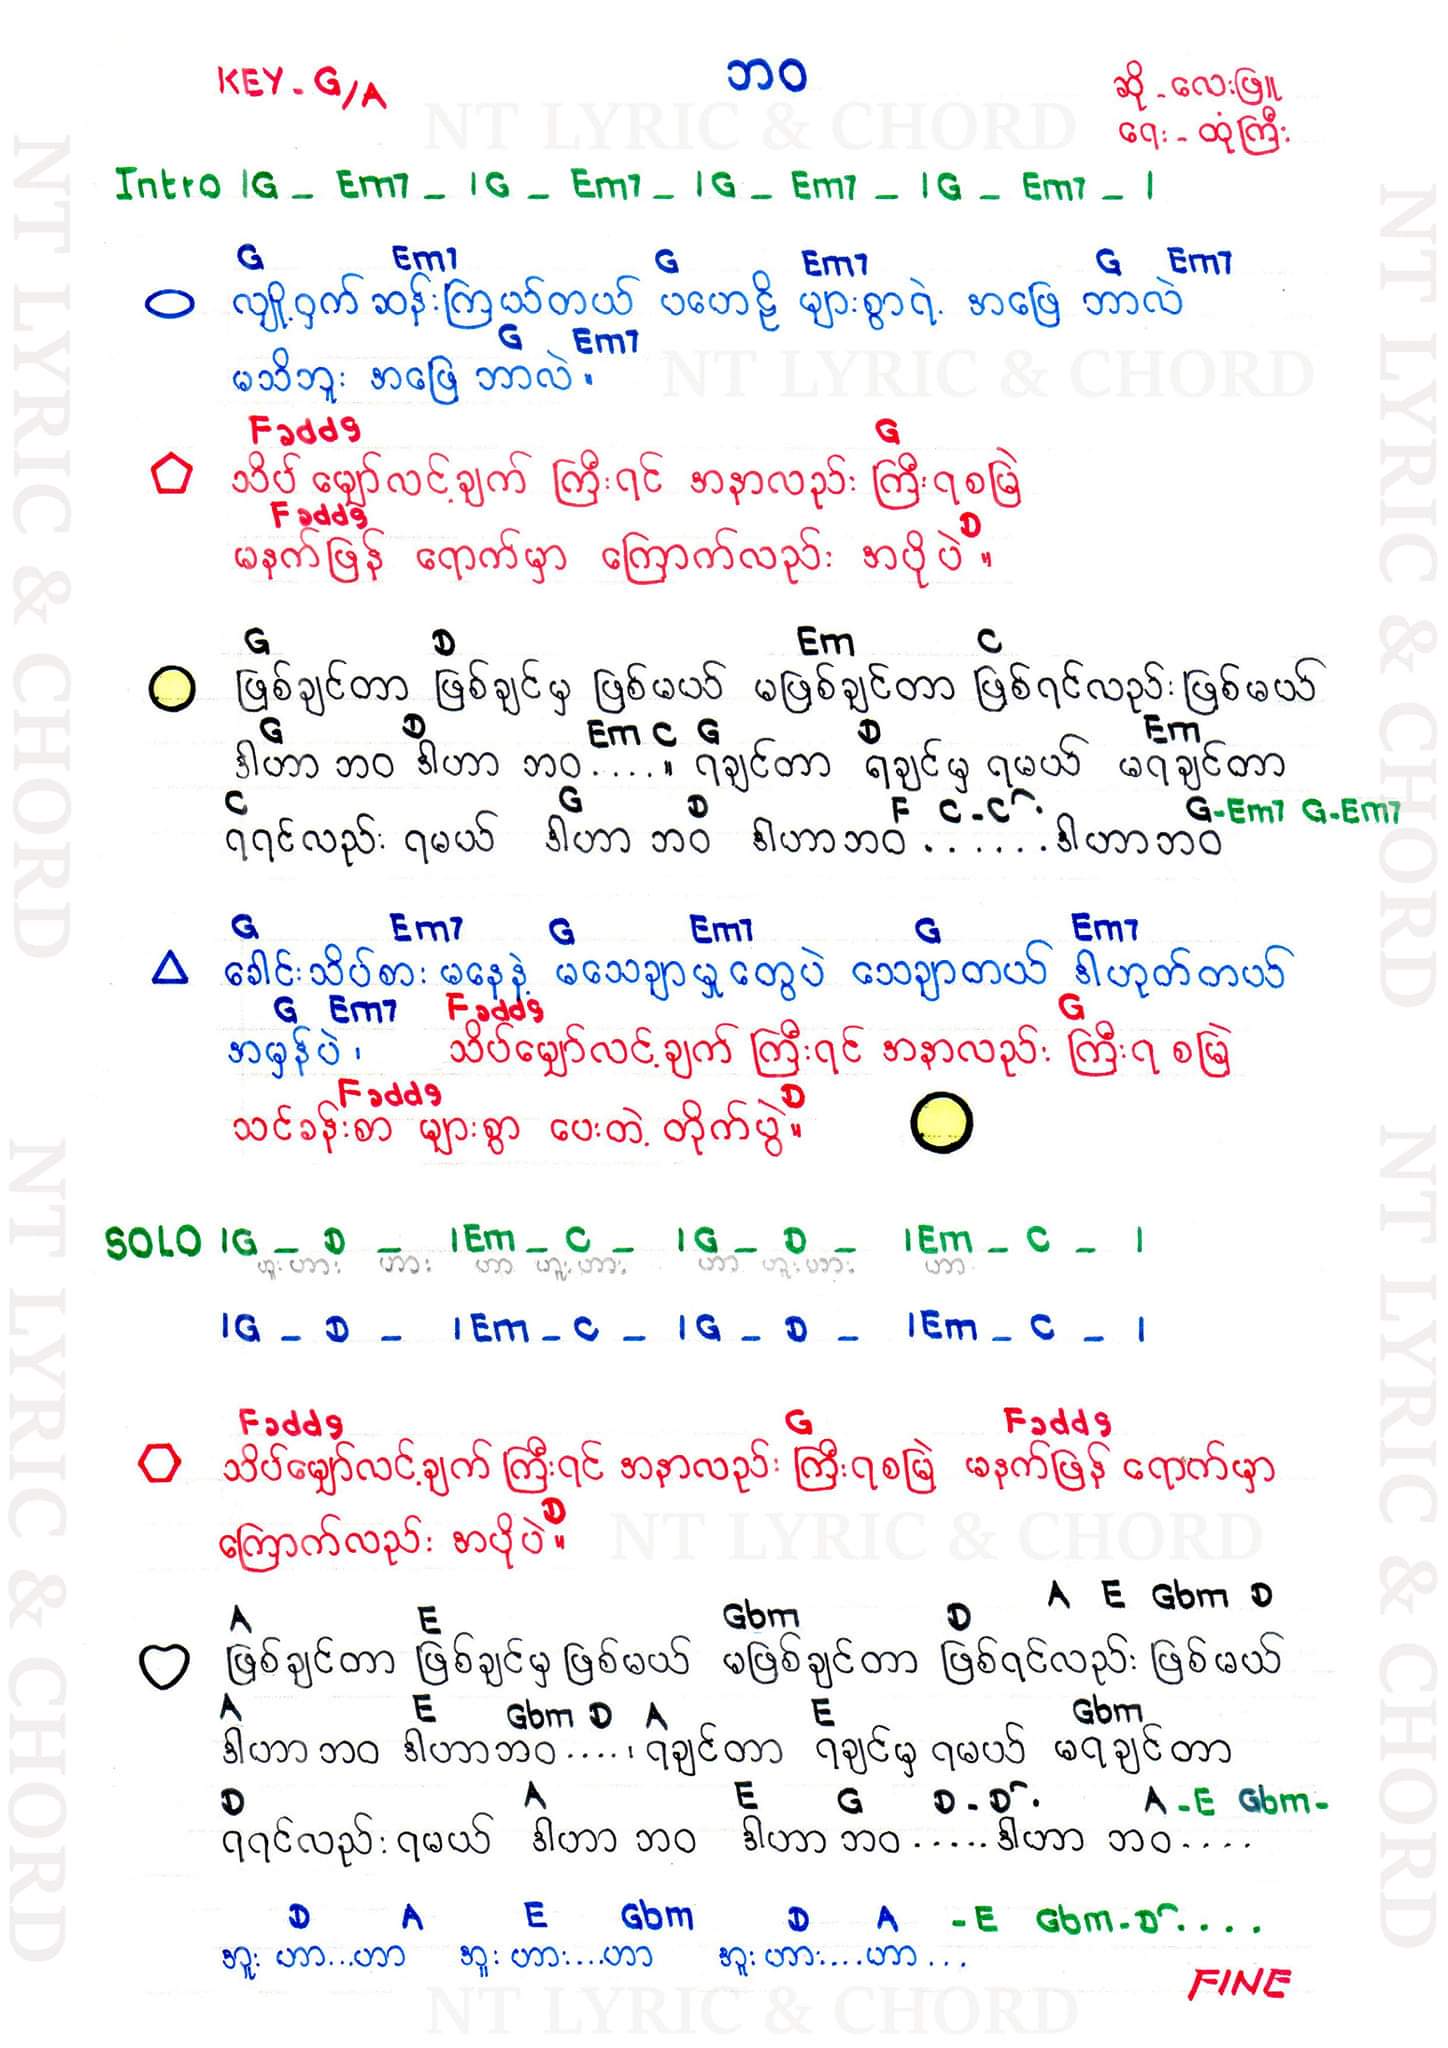 KEY - G/A
ဘဝ
ဆို - လေးဖြူ
ရေး - ထုံကြီး
NT LYRIC & CHORD
Intro |G _ Em7 _ |G _ Em7 _ |G _ Em7 _ |G _ Em7 _ |
G Em7 G Em7 G Em7
လျှို့ဝှက်ဆန်းကြယ်တယ် ပဟေဠိ များစွာရဲ့ အဖြေ ဘာလဲ
G Em7
မသိဘူး အဖြေ ဘာလဲ။
NT LYRIC & CHORD
Fadd9 G
သိပ်မျှော်လင့်ချက် ကြီးရင် အနာလည်း ကြီးရစမြဲ
Fadd9 D
မနက်ဖြန် ရောက်မှာ ကြောက်လည်း အပိုပဲ။
G D Em C
ဖြစ်ချင်တာ ဖြစ်ချင်မှ ဖြစ်မယ် မဖြစ်ချင်တာ ဖြစ်ရင်လည်းဖြစ်မယ်
G D Em C G D Em
ဒါဟာ ဘဝ ဒါဟာ ဘဝ.....။ ရချင်တာ ရချင်မှ ရမယ် မရချင်တာ
C G D F C-C G-Em7 G-Em7
ရရင်လည်း ရမယ် ဒါဟာ ဘဝ ဒါဟာဘဝ.......ဒါဟာဘဝ
G Em7 G Em7 G Em7
ခေါင်းသိပ်စားမနေနဲ့ မသေချာမှုတွေပဲ သေချာတယ် ဒါဟုတ်တယ်
G Em7 Fadd9 G
အမှန်ပဲ၊ သိပ်မျှော်လင့်ချက် ကြီးရင် အနာလည်း ကြီးရစမြဲ
Fadd9 D
သင်ခန်းစာ များစွာ ပေးတဲ့ တိုက်ပွဲ။
SOLO |G _ D _ |Em _ C _ |G _ D _ |Em _ C _ |
ဟူးဟား ဟား ဟာ ဟူးဟား ဟာ ဟူးဟား ဟာ
|G _ D _ |Em _ C _ |G _ D _ |Em _ C _ |
Fadd9 G Fadd9
သိပ်မျှော်လင့်ချက် ကြီးရင် အနာလည်း ကြီးရစမြဲ မနက်ဖြန် ရောက်မှာ
D
ကြောက်လည်း အပိုပဲ။
NT LYRIC & CHORD
A E Gbm D A E Gbm D
ဖြစ်ချင်တာ ဖြစ်ချင်မှ ဖြစ်မယ် မဖြစ်ချင်တာ ဖြစ်ရင်လည်း ဖြစ်မယ်
A E Gbm D A E Gbm
ဒါဟာ ဘဝ ဒါဟာဘဝ....၊ ရချင်တာ ရချင်မှ ရမယ် မရချင်တာ
D A E G D-D. A-E Gbm-
ရရင်လည်းရမယ် ဒါဟာ ဘဝ ဒါဟာ ဘဝ.....ဒါဟာ ဘဝ....
D A E Gbm D A -E Gbm-D....
အူး ဟာ...ဟာ အူး ဟား....ဟာ အူး ဟား....ဟာ...
FINE
NT LYRIC & CHORD
NT LYRIC & CHORD
NT LYRIC & CHORD
NT LYRIC & CHORD
NT LYRIC & CHORD